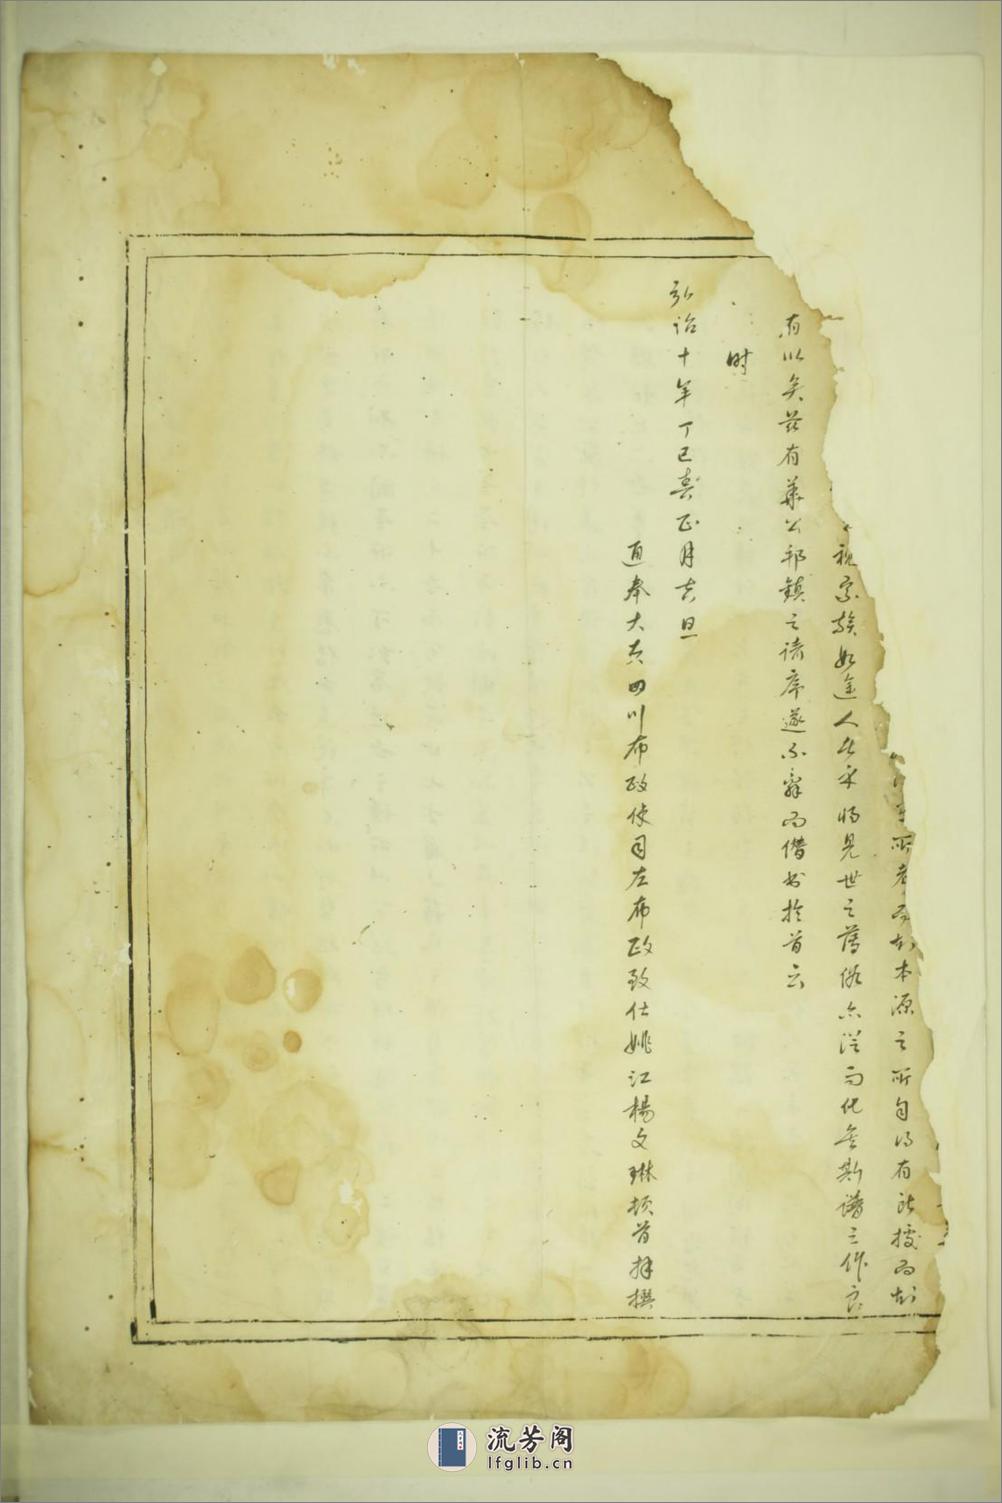 所考而知本源之所自得有所據而知
視宗族如途人者承將見世之舊俗亦從而化矣斯譜之作良
有以矣茲有華公邦鎮之請序遂不辭而僭書於首云
时
弘治十年丁巳春正月吉旦
通奉大夫四川布政使司左布政致仕姚江楊文琳頓首拜撰
流芳阁
lfglib.cn